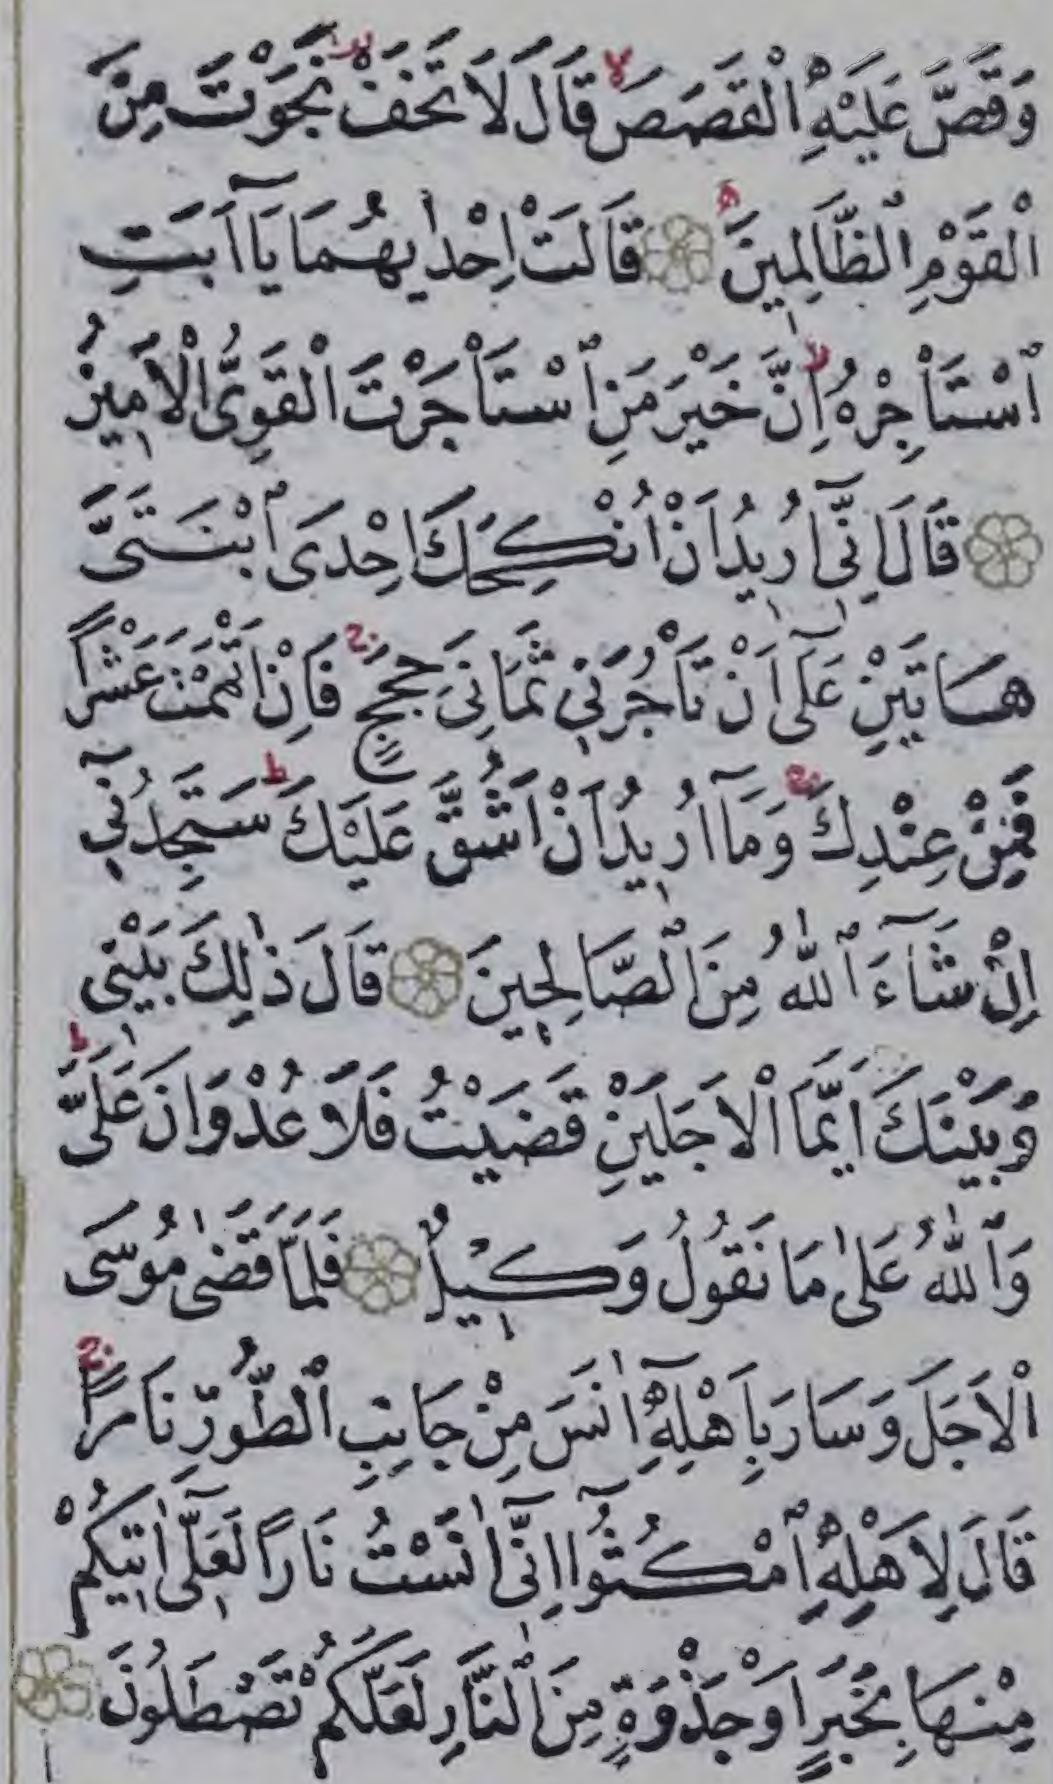 وَقَصَّ عَلَيْهِ ٱلْقَصَصَ لا قَالَ لَا تَخَفْ نَجَوْتَ مِنَ
ٱلْقَوْمِ ٱلظَّالِمِينَ قَالَتْ اِحْدٰيهُمَا يَآ اَبَتِ
ٱسْتَأْجِرْهُ اِنَّ خَيْرَ مَنِ ٱسْتَأْجَرْتَ ٱلْقَوِىُّ ٱلْاَمِينُ
قَالَ اِنّٓى اُرِيدُ اَنْ اُنْكِحَكَ اِحْدَى ٱبْنَتَىَّ
هَاتَيْنِ عَلٰٓى اَنْ تَأْجُرَنِى ثَمَانِىَ حِجَجٍ ج فَاِنْ اَتْمَمْتَ عَشْرًا
فَمِنْ عِنْدِكَ ج وَمَآ اُرِيدُ اَنْ اَشُقَّ عَلَيْكَ ط سَتَجِدُنِىٓ
اِنْ شَآءَ ٱللّٰهُ مِنَ ٱلصَّالِحِينَ قَالَ ذٰلِكَ بَيْنِى
وَبَيْنَكَ اَيَّمَا ٱلْاَجَلَيْنِ قَضَيْتُ فَلَا عُدْوَانَ عَلَىَّ ط
وَٱللّٰهُ عَلٰى مَا نَقُولُ وَكِيلٌ فَلَمَّا قَضٰى مُوسَى
ٱلْاَجَلَ وَسَارَ بِاَهْلِهٓ اٰنَسَ مِنْ جَانِبِ ٱلطُّورِ نَارًا ج
قَالَ لِاَهْلِهِ ٱمْكُثُوٓا اِنّٓى اٰنَسْتُ نَارًا لَعَلّٓى اٰتِيكُمْ
مِنْهَا بِخَبَرٍ اَوْ جَذْوَةٍ مِنَ ٱلنَّارِ لَعَلَّكُمْ تَصْطَلُونَ